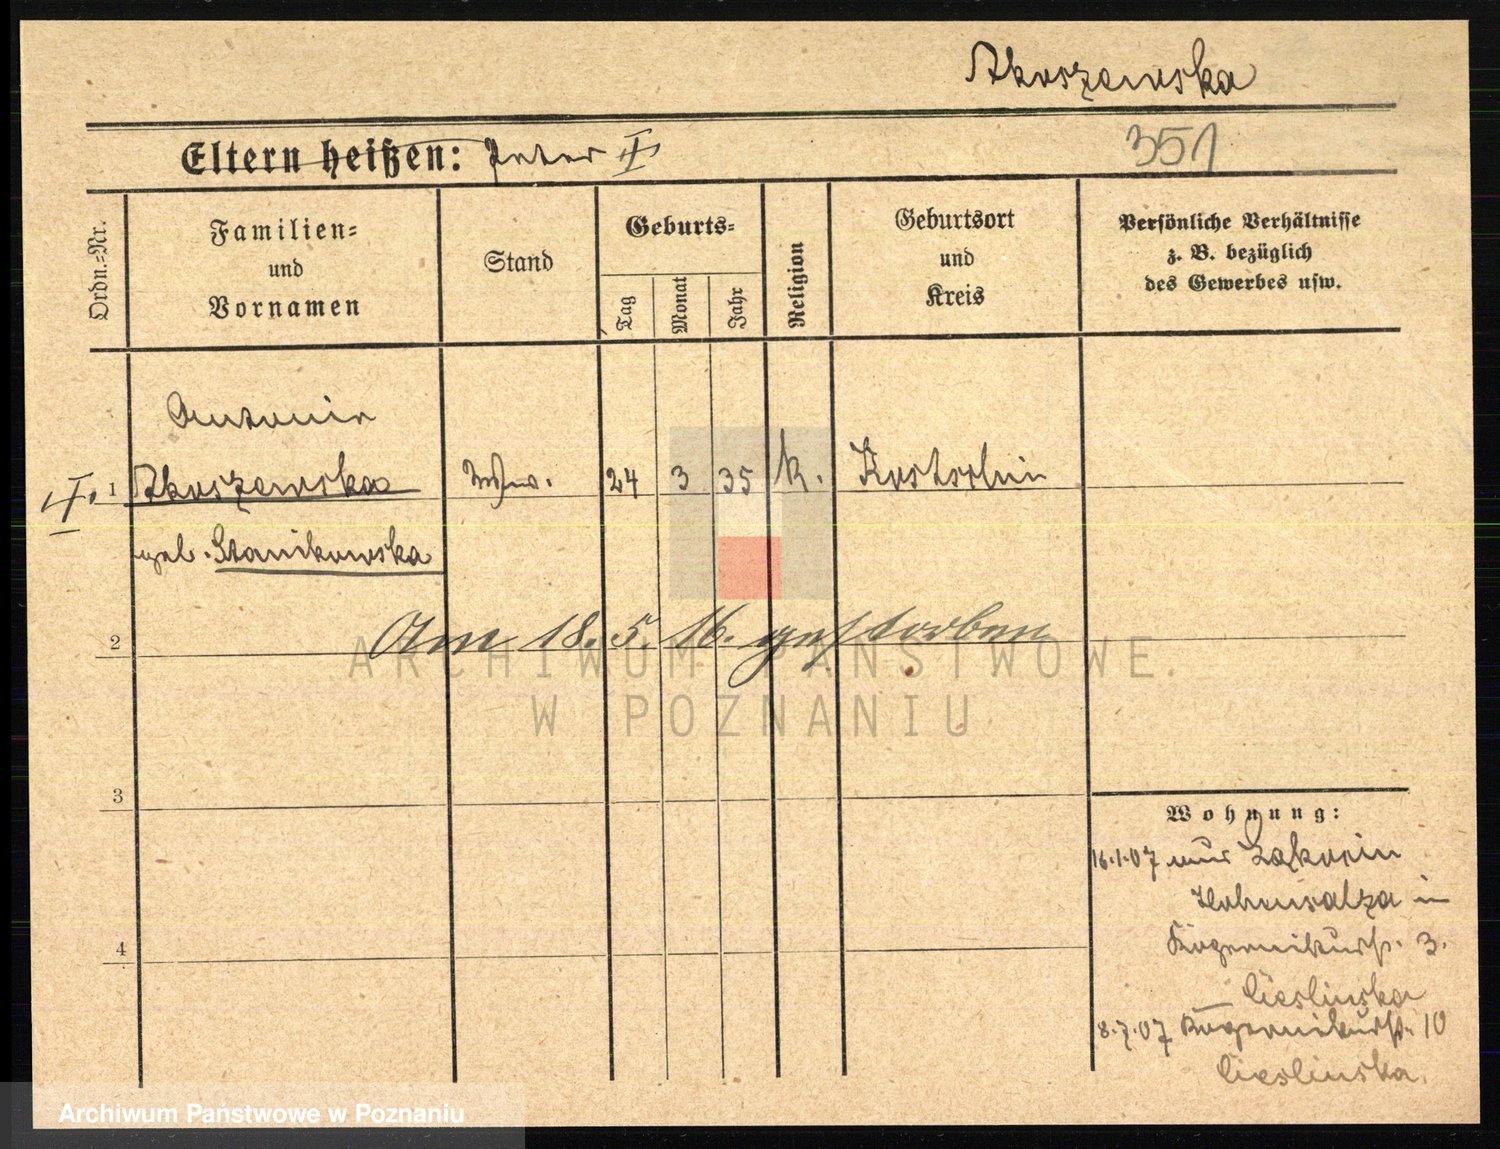 Skoszewska
Eltern heißen: Peter
351
Ordn.=Nr.
Familien=
und
Vornamen
Stand
Geburts=
Tag
Monat
Jahr
Religion
Geburtsort
und
Kreis
Persönliche Verhältnisse
z. B. bezüglich
des Gewerbes usw.
Antonie
1 Skoszewska Ww. 24 3 35 k. Kostschin
geb. Stanikowska
2 Am 18. 5. 16. gestorben
ARCHIWUM PAŃSTWOWE
W POZNANIU
3
Wohnung:
16.1.07 aus
Hohensalza in
4 3.
Cieslinska
8.7.07 10
Cieslinska.
Archiwum Państwowe w Poznaniu